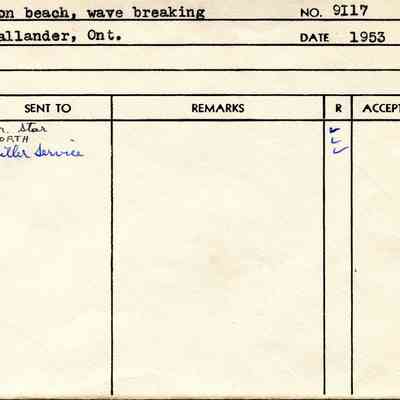 on beach, wave breaking NO. 9I17
allander, Ont. DATE 1953
SENT TO REMARKS R ACCEPT
Star
ORTH
Service